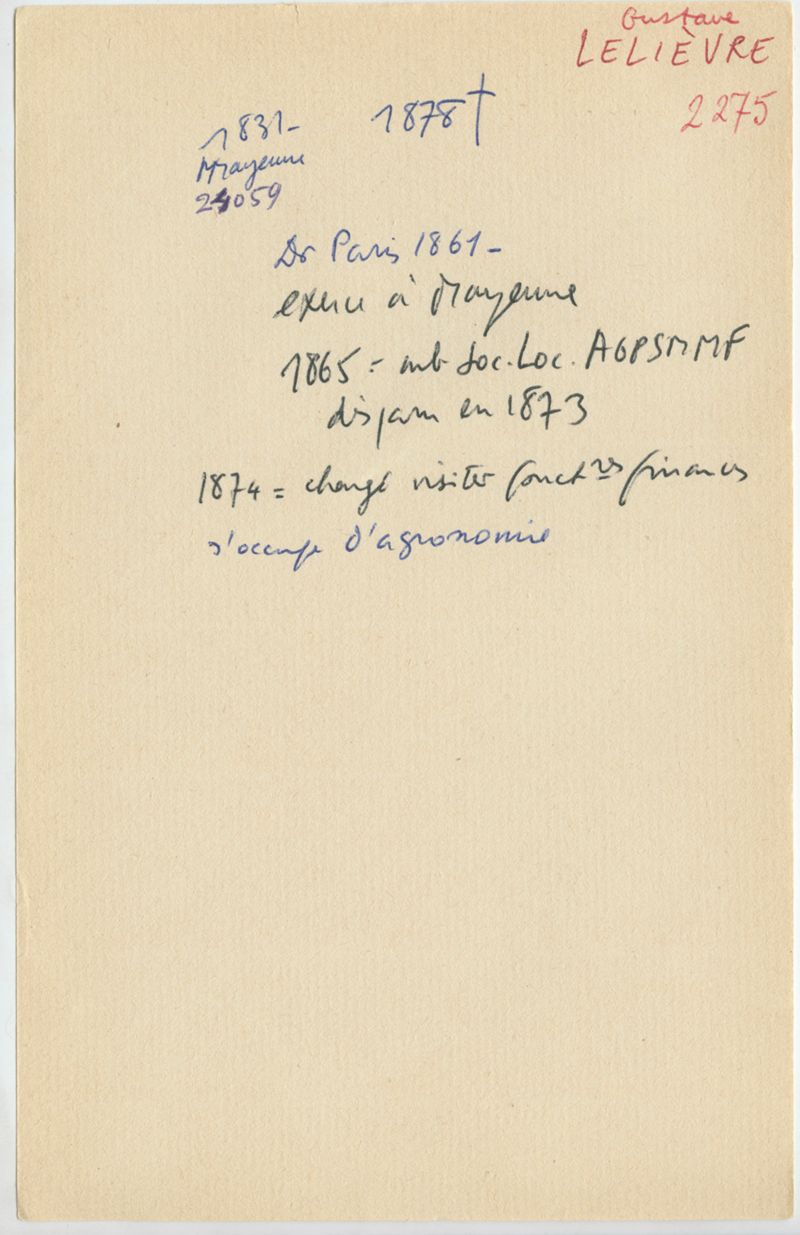 Gustave
LELIÈVRE
2275
1831-
1878†
Mayenne
24059
Dr Paris 1861-
exerce à Mayenne
1865 = mb Soc. Loc. AGPSMMF
disparu en 1873
1874 = chargé visiter fonctres finances
s'occupe d'agronomie